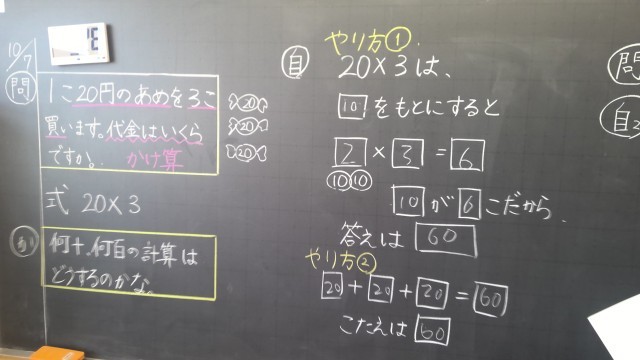 10/7
問
1こ20円のあめを3こ
買います。代金はいくら
ですか。 かけ算
20
20
20
式 20×3
何十、何百の計算は
どうするのかな。
やり方①
自 20×3は、
10をもとにすると
2×3=6
10 10
10が6こだから、
答えは 60
やり方②
20+20+20=60
こたえは60
問
自2